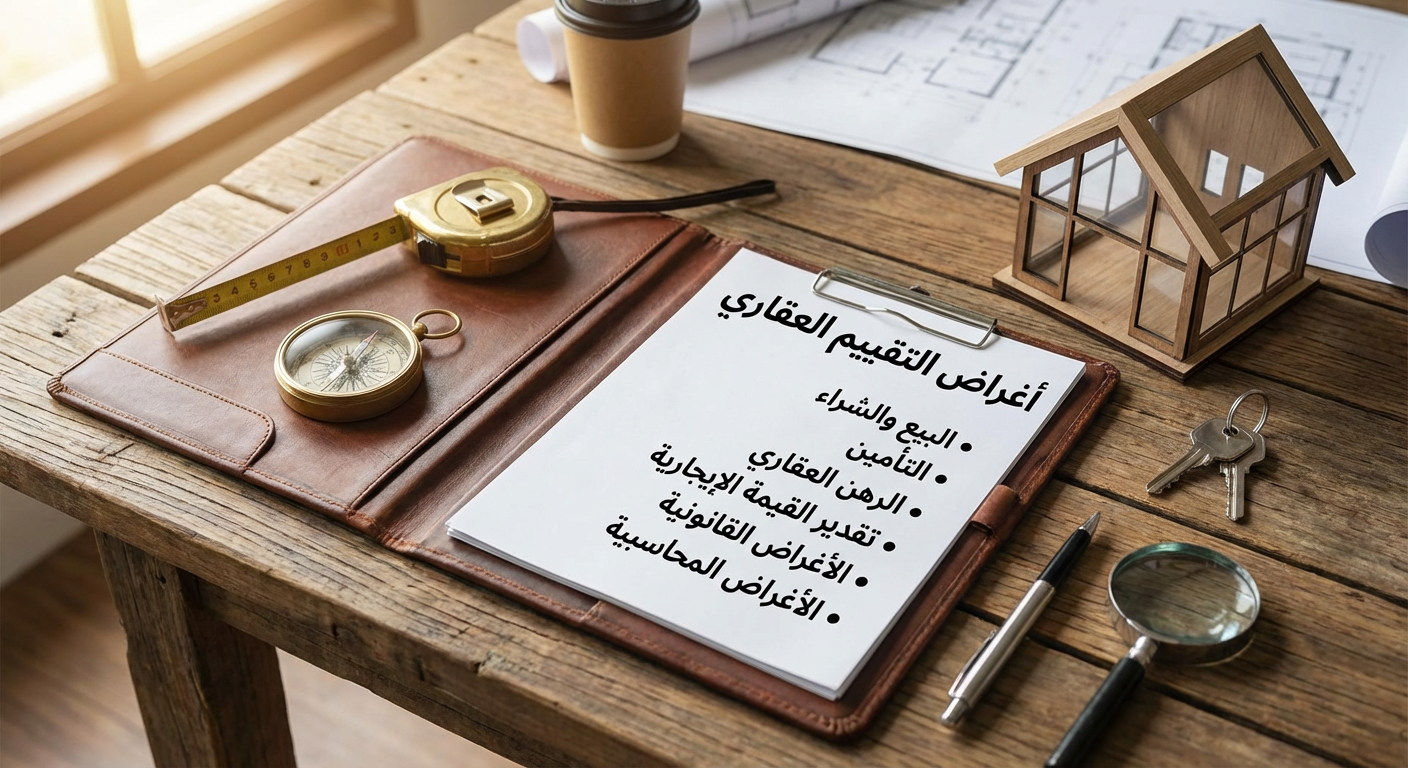 أغراض التقييم العقاري
• البيع والشراء
• التأمين
• الرهن العقاري
• تقدير القيمة الإيجارية
• الأغراض القانونية
• الأغراض المحاسبية